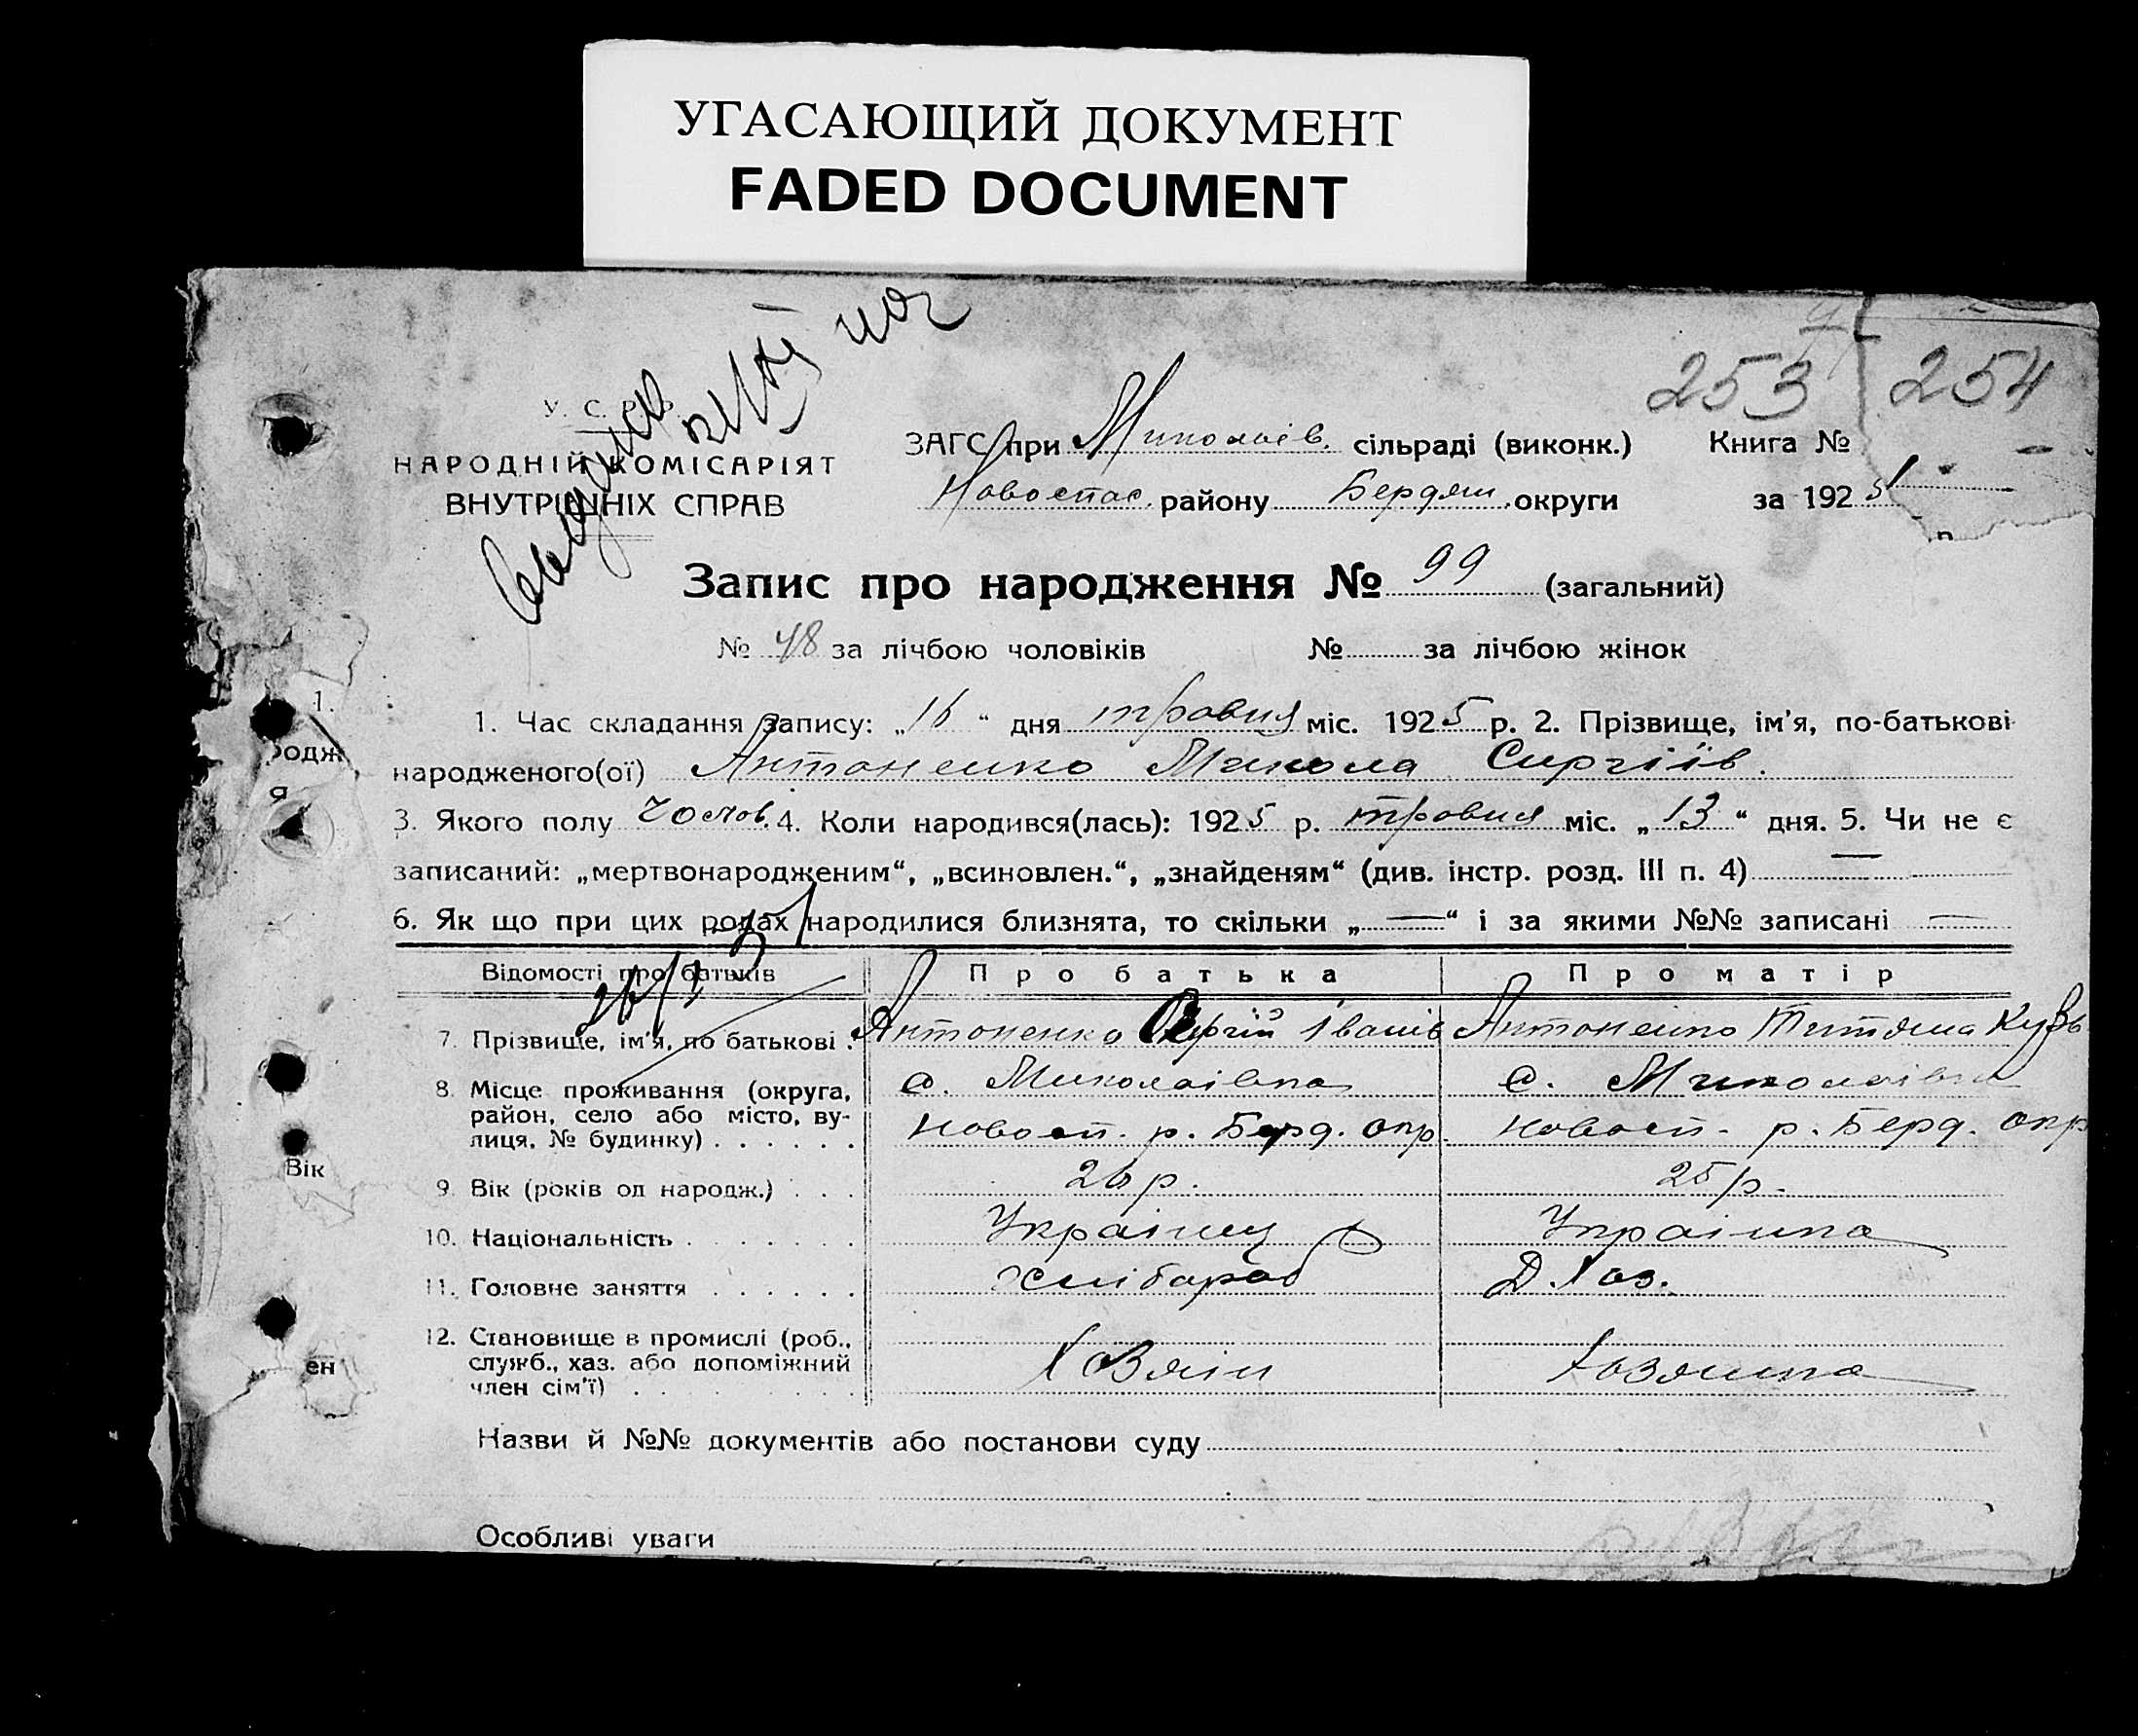 УГАСАЮЩИЙ ДОКУМЕНТ
FADED DOCUMENT
253 254
У. С. Р. Р.
НАРОДНІЙ КОМІСАРІЯТ
ВНУТРІШНІХ СПРАВ
ЗАГС при Миколаїв. сільраді (виконк.) Книга №
Новоспас. району Бердян. округи за 1925
Запис про народження № 99 (загальний)
№ 48 за лічбою чоловіків № за лічбою жінок
1. Час складання запису: „16“ дня травня міс. 1925 р. 2. Прізвище, ім'я, по-батькові
народженого(ої) Антоненко Микола Сиргіїв.
3. Якого полу чолов. 4. Коли народився(лась): 1925 р. травня міс. „13“ дня. 5. Чи не є
записаний: „мертвонародженим“, „всиновлен.“, „знайденям“ (див. інстр. розд. III п. 4) —
6. Як що при цих родах народилися близнята, то скільки „—“ і за якими №№ записані —
Відомості про батьків Про батька Про матір
7. Прізвище, ім'я, по батькові . Антоненко Сергій Іванів Антоненко Титяна Кузь
8. Місце проживання (округа, с. Миколаівка с. Миколаівка
район, село або місто, ву-
лиця, № будинку) . . . . . . Новосп. р. Берд. окр. Новосп. р. Берд. окр
9. Вік (років од народж.) . . . 26 р. 25 р.
10. Національність . . . . . . . Украінец Украінка
11. Головне заняття . . . . . . хлібороб Д. Хоз.
12. Становище в промислі (роб.,
служб., хаз. або допоміжний Хозяін Хозяика
член сім'ї) . . . . . . . .
Назви й №№ документів або постанови суду
Особливі уваги
1.
родж
я
Вік
ен